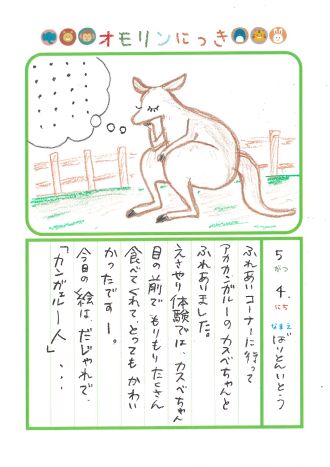 オモリンにっき
5がつ4にち
なまえ ばりとんいとう
ふれあいコーナーに行って
アカカンガルーのカスベちゃんと
ふれあいました。
えさやり体験では、カスベちゃん
目の前で、もりもりたくさん
食べてくれて、とってもかわい
かったですー。
今日の絵は、だじゃれで、
「カンガエルー人」...